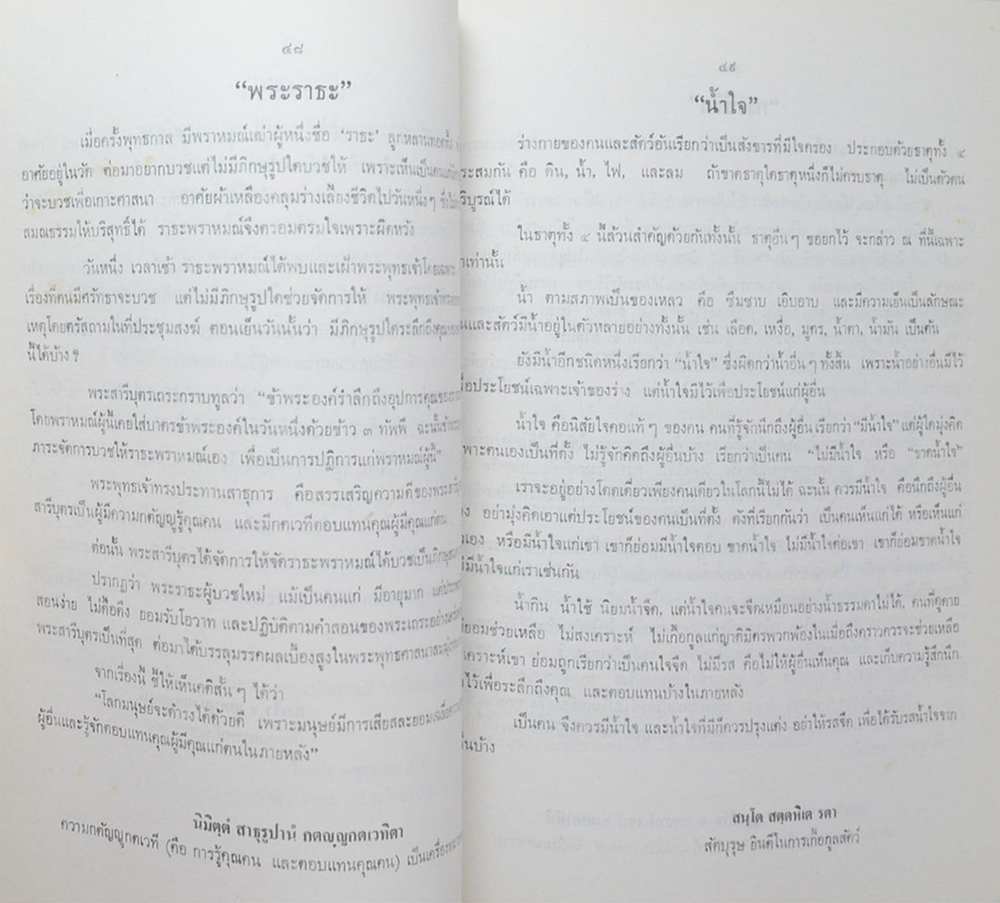 ๔๘
“พระราธะ”
เมื่อครั้งพุทธกาล มีพราหมณ์เฒ่าผู้หนึ่งชื่อ ‘ราธะ’ ลูกหลานทอดทิ้ง
อาศัยอยู่ในวัด ต่อมาอยากบวชแต่ไม่มีภิกษุรูปใดบวชให้ เพราะเห็นเป็นคนแก่
ว่าจะบวชเพื่อเกาะศาสนา อาศัยผ้าเหลืองคลุมร่างเลี้ยงชีวิตไปวันหนึ่งๆ
สมณธรรมให้บริสุทธิ์ได้ ราธะพราหมณ์จึงตรอมตรมใจเพราะผิดหวัง
วันหนึ่ง เวลาเช้า ราธะพราหมณ์ได้พบและเฝ้าพระพุทธเจ้าโดยเฉพาะ
เรื่องที่ตนมีศรัทธาจะบวช แต่ไม่มีภิกษุรูปใดช่วยจัดการให้ พระพุทธเจ้า
เหตุโดยตรัสถามในที่ประชุมสงฆ์ ตอนเย็นวันนั้นว่า มีภิกษุรูปใดระลึกถึงคุณ
นี้ได้บ้าง ?
พระสารีบุตรเถระกราบทูลว่า “ข้าพระองค์รำลึกถึงอุปการคุณของ
โดยพราหมณ์ผู้นี้เคยใส่บาตรข้าพระองค์ในวันหนึ่งด้วยข้าว ๓ ทัพพี ฉะนั้น
ภาระจัดการบวชให้ราธะพราหมณ์เอง เพื่อเป็นการปฏิการแก่พราหมณ์ผู้นี้”
พระพุทธเจ้าทรงประทานสาธุการ คือสรรเสริญความดีของพระ
สารีบุตรเป็นผู้มีความกตัญญูรู้คุณคน และมีกตเวทีตอบแทนคุณผู้มีคุณแก่ตน
ต่อนั้น พระสารีบุตรได้จัดการให้จัดราธะพราหมณ์ได้บวชเป็นภิกษุ
ปรากฏว่า พระราธะผู้บวชใหม่ แม้เป็นคนแก่ มีอายุมาก แต่
สอนง่าย ไม่ดื้อดึง ยอมรับโอวาท และปฏิบัติตามคำสอนของพระเถระอย่าง
พระสารีบุตรเป็นที่สุด ต่อมาได้บรรลุมรรคผลเบื้องสูงในพระพุทธศาสนา
จากเรื่องนี้ ชี้ให้เห็นคติสั้นๆ ได้ว่า
“โลกมนุษย์จะดำรงได้ด้วยดี เพราะมนุษย์มีการเสียสละยอม
ผู้อื่นและรู้จักตอบแทนคุณผู้มีคุณแก่ตนในภายหลัง”
นิมิตฺตํ สาธุรูปานํ กตญฺญูกตเวทิตา
ความกตัญญูกตเวที (คือ การรู้คุณคน และตอบแทนคุณคน) เป็น
๔๙
“น้ำใจ”
ร่างกายของคนและสัตว์อันเรียกว่าเป็นสังขารที่มีใจครอง ประกอบด้วยธาตุทั้ง ๔
ระสมกัน คือ ดิน, น้ำ, ไฟ, และลม ถ้าขาดธาตุใดธาตุหนึ่งก็ไม่ครบธาตุ ไม่เป็นตัวตน
ริบูรณ์ได้
ในธาตุทั้ง ๔ นี้ล้วนสำคัญด้วยกันทั้งนั้น ธาตุอื่นๆ ขอยกไว้ จะกล่าว ณ ที่นี้เฉพาะ
าเท่านั้น
น้ำ ตามสภาพเป็นของเหลว คือ ซึมซาบ เอิบอาบ และมีความเย็นเป็นลักษณะ
นและสัตว์มีน้ำอยู่ในตัวหลายอย่างทั้งนั้น เช่น เลือด, เหงื่อ, มูตร, น้ำตา, น้ำมัน เป็นต้น
ยังมีน้ำอีกชนิดหนึ่งเรียกว่า “น้ำใจ” ซึ่งผิดกว่าน้ำอื่นๆ ทั้งสิ้น เพราะน้ำอย่างอื่นมีไว้
อประโยชน์เฉพาะเจ้าของร่าง แต่น้ำใจมีไว้เพื่อประโยชน์แก่ผู้อื่น
น้ำใจ คือนิสัยใจคอแท้ๆ ของคน คนที่รู้จักนึกถึงผู้อื่น เรียกว่า “มีน้ำใจ” แต่ผู้ใดมุ่งคิด
พาะตนเองเป็นที่ตั้ง ไม่รู้จักคิดถึงผู้อื่นบ้าง เรียกว่าเป็นคน “ไม่มีน้ำใจ หรือ “ขาดน้ำใจ”
เราจะอยู่อย่างโดดเดี่ยวเพียงคนเดียวในโลกนี้ไม่ได้ ฉะนั้น ควรมีน้ำใจ คือนึกถึงผู้อื่น
ง อย่ามุ่งคิดเอาแต่ประโยชน์ของตนเป็นที่ตั้ง ดังที่เรียกกันว่า เป็นคนเห็นแก่ได้ หรือเห็นแก่
เอง หรือมีน้ำใจแก่เขา เขาก็ย่อมมีน้ำใจตอบ ขาดน้ำใจ ไม่มีน้ำใจต่อเขา เขาก็ย่อมขาดน้ำใจ
ม่มีน้ำใจแก่เราเช่นกัน
น้ำกิน น้ำใช้ นิยมน้ำจืด, แต่น้ำใจคนจะจืดเหมือนอย่างน้ำธรรมดาไม่ได้, คนที่ดูดาย
ยอมช่วยเหลือ ไม่สงเคราะห์ ไม่เกื้อกูลแก่ญาติมิตรพวกพ้องในเมื่อถึงคราวควรจะช่วยเหลือ
เคราะห์เขา ย่อมถูกเรียกว่าเป็นคนใจจืด ไม่มีรส คือไม่ให้ผู้อื่นเห็นคุณ และเก็บความรู้สึกนึก
ไว้เพื่อระลึกถึงคุณ และตอบแทนบ้างในภายหลัง
เป็นคน จึงควรมีน้ำใจ และน้ำใจที่มีก็ควรปรุงแต่ง อย่าให้รสจืด เพื่อได้รับรสน้ำใจจาก
อื่นบ้าง
สนฺโต สตฺตหิเต รตา
สัตบุรุษ ยินดีในการเกื้อกูลสัตว์